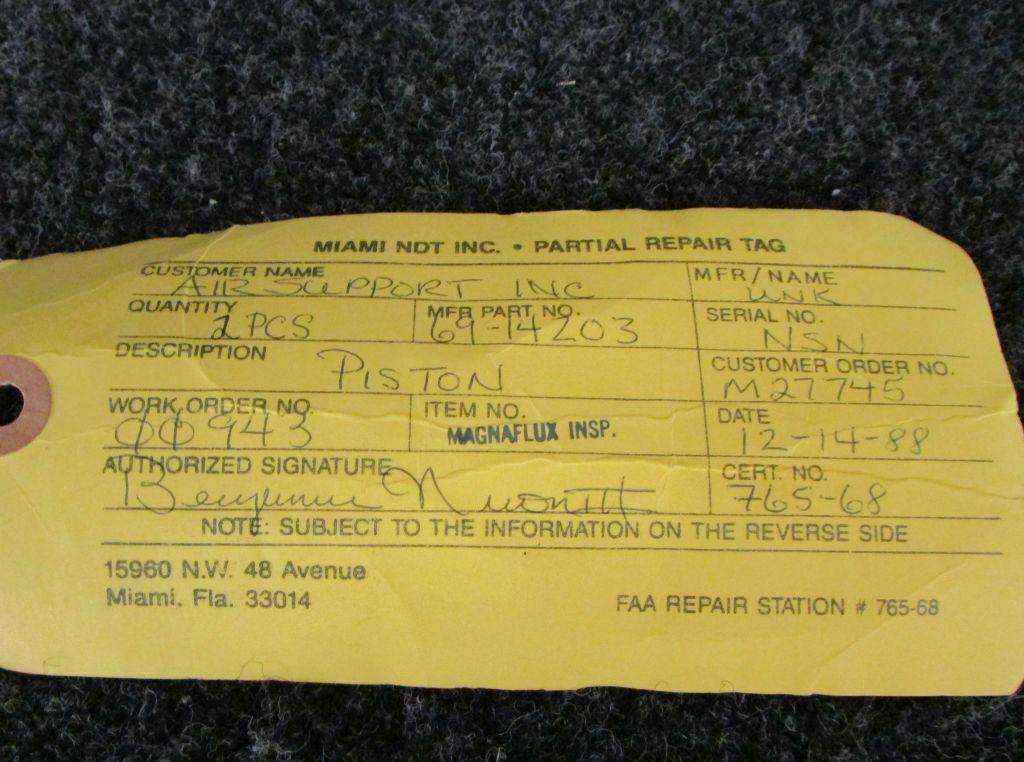 MIAMI NDT INC. • PARTIAL REPAIR TAG
CUSTOMER NAME
AIR SUPPORT INC
MFR/NAME
UNK
QUANTITY
2 PCS
MFR PART NO.
69-14203
SERIAL NO.
NSN
DESCRIPTION
PISTON
CUSTOMER ORDER NO.
M27745
WORK ORDER NO.
00943
ITEM NO.
MAGNAFLUX INSP.
DATE
12-14-88
AUTHORIZED SIGNATURE
CERT. NO.
765-68
NOTE: SUBJECT TO THE INFORMATION ON THE REVERSE SIDE
15960 N.W. 48 Avenue
Miami. Fla. 33014
FAA REPAIR STATION # 765-68